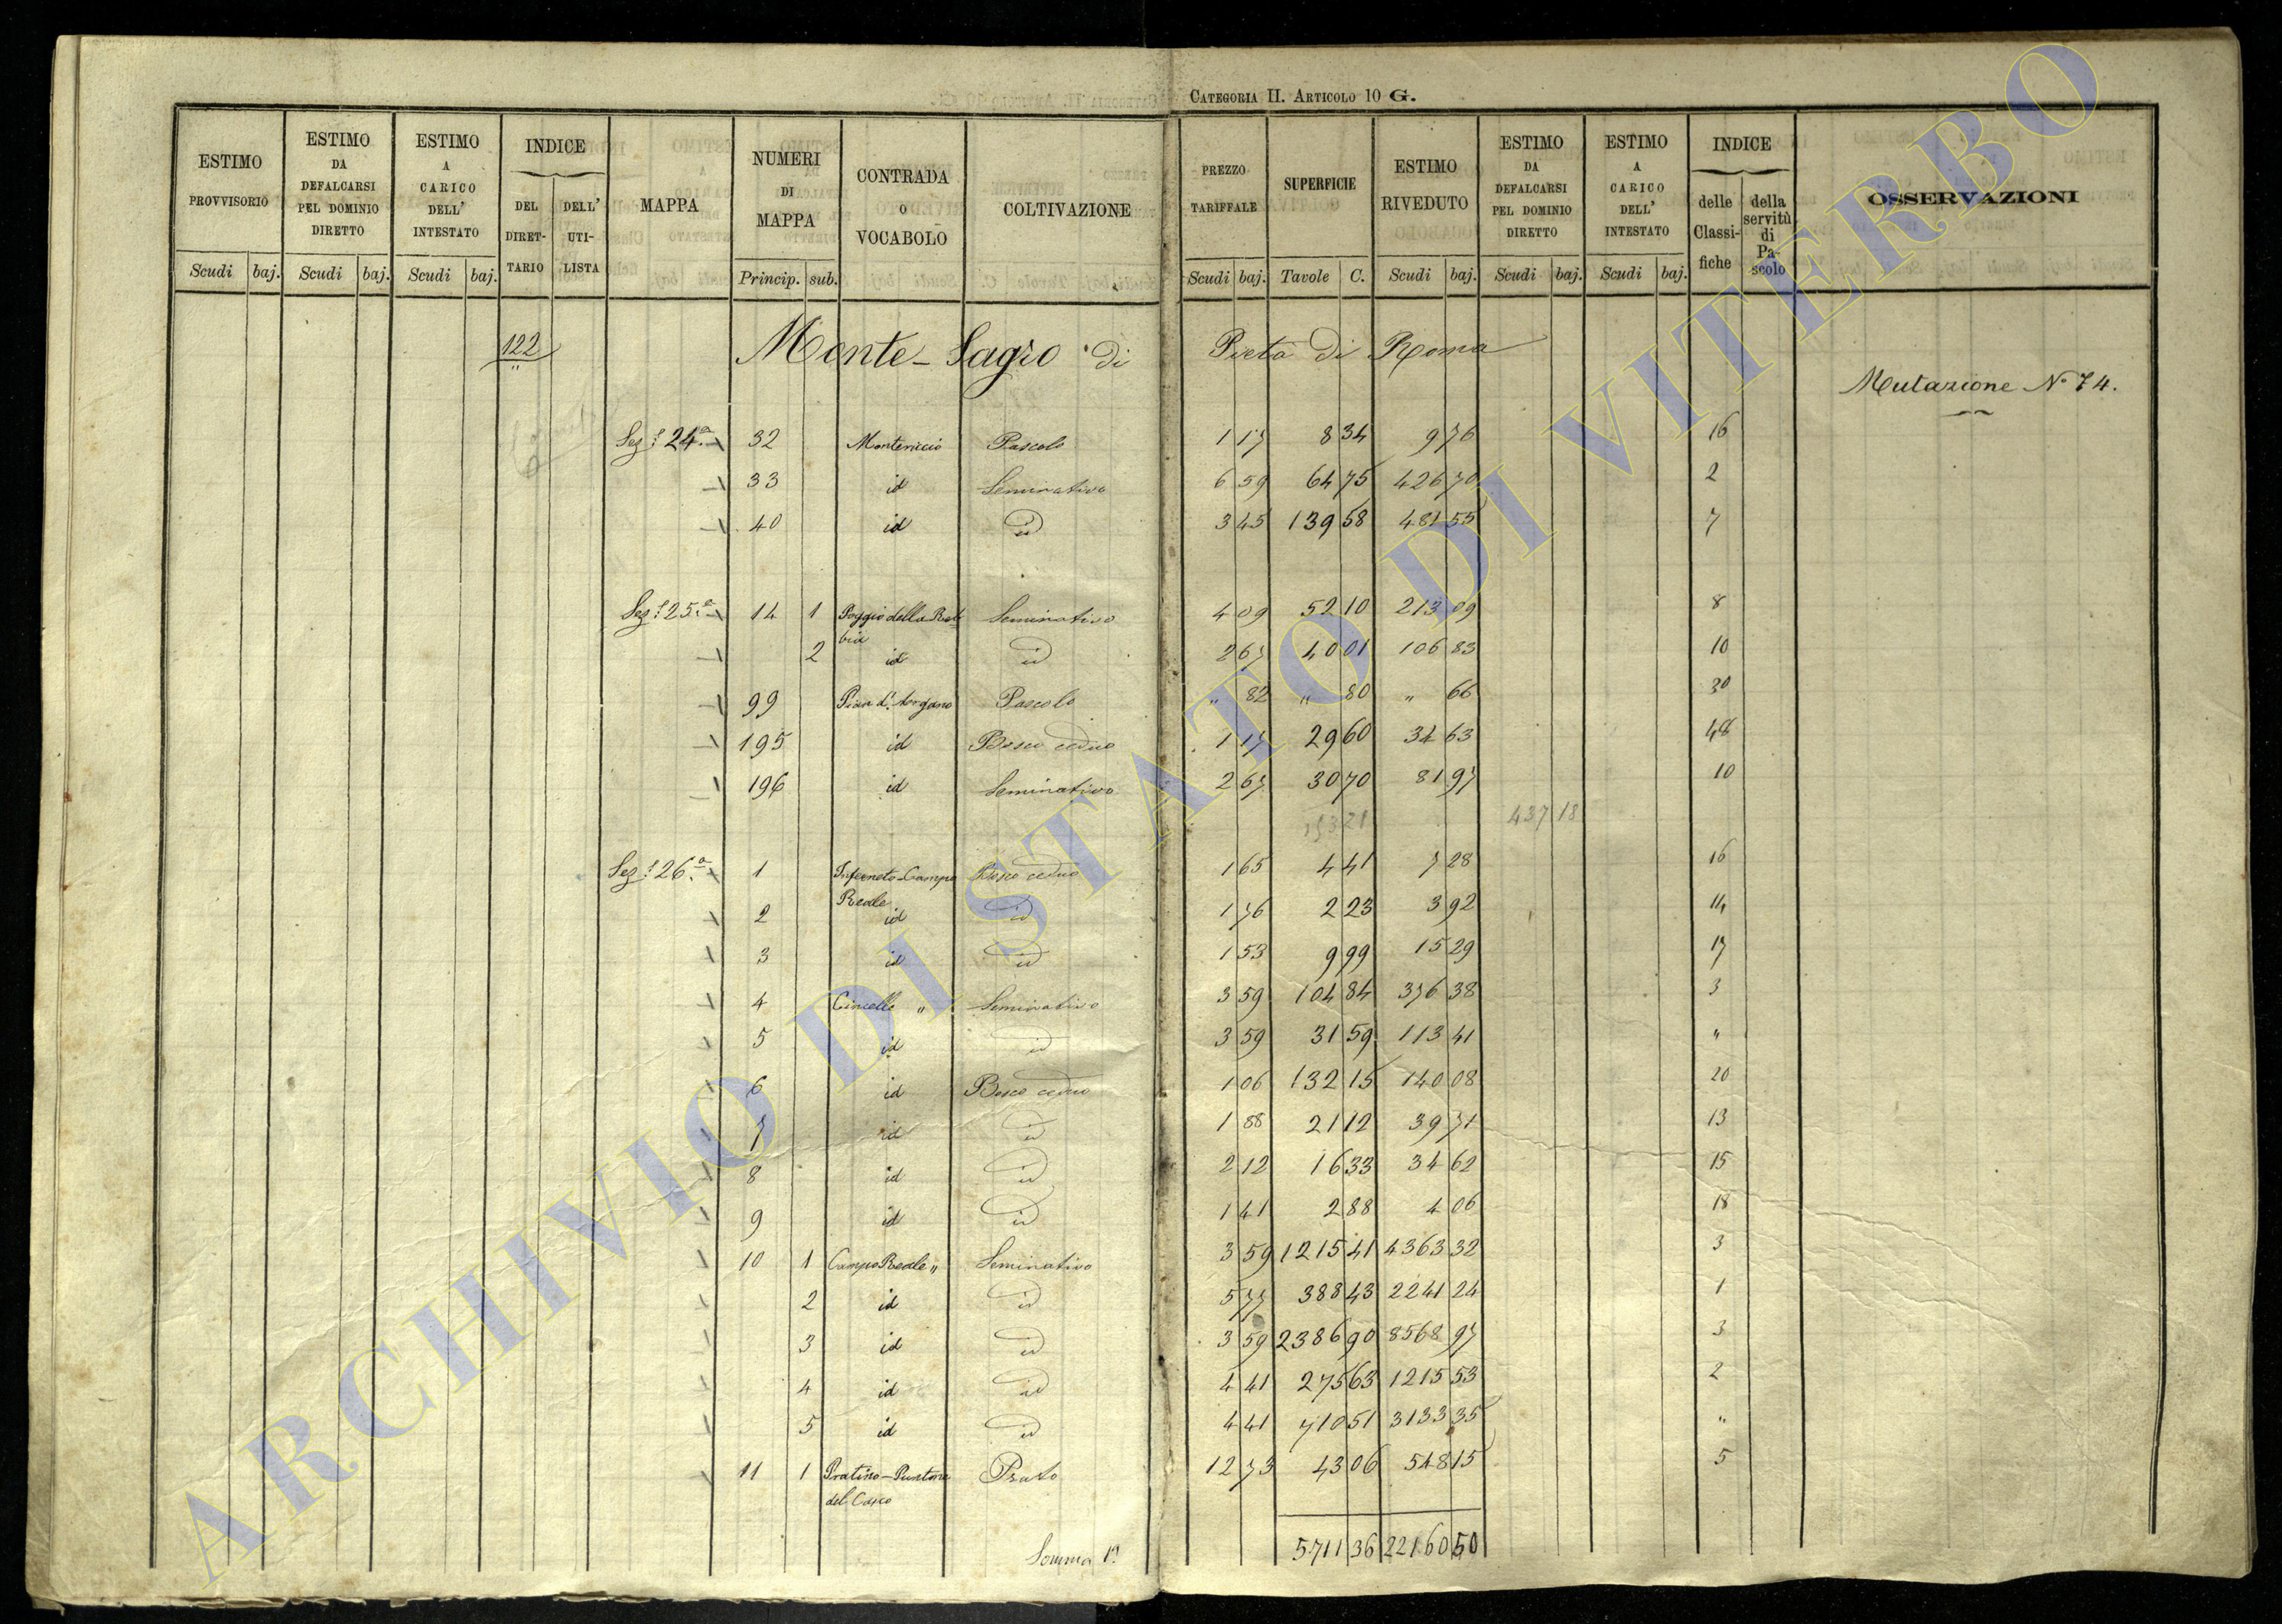 CATEGORIA II. ARTICOLO 10 G.
ESTIMO PROVVISORIO Scudi baj.
ESTIMO DA DEFALCARSI PEL DOMINIO DIRETTO Scudi baj.
ESTIMO A CARICO DELL' INTESTATO Scudi baj.
INDICE DEL DIRET-TARIO DELL' UTI-LISTA
MAPPA
NUMERI DI MAPPA Princip. sub.
CONTRADA O VOCABOLO
COLTIVAZIONE
PREZZO TARIFFALE Scudi baj.
SUPERFICIE Tavole C.
ESTIMO RIVEDUTO Scudi baj.
ESTIMO DA DEFALCARSI PEL DOMINIO DIRETTO Scudi baj.
ESTIMO A CARICO DELL' INTESTATO Scudi baj.
INDICE delle Classi-fiche della servitù di Pa-scolo
OSSERVAZIONI
122 Monte-Sagro di Pietà di Roma
Mutazione Nº 74.
Sez.e 24.a 32 Montericcio Pascolo 1 17 8 34 9 76 16
33 id Seminativo 6 59 64 75 426 70 2
40 id id 3 45 139 58 481 55 7
Sez.e 25.a 14 1 Poggio della Seminativo 4 09 52 10 213 09 8
2 id id 2 67 40 01 106 83 10
99 Pian d'Organo Pascolo " 82 " 80 " 66 30
195 id Bosco ceduo 1 17 29 60 34 63 48
196 id Seminativo 2 67 30 70 81 97 10
437 18
Sez.e 26.a 1 Inferneto-Campo Bosco ceduo 1 65 4 41 7 28 16
Reale
2 id id 1 76 2 23 3 92 14
3 id id 1 53 9 99 15 29 17
4 Cincelle " Seminativo 3 59 104 84 376 38 3
5 id id 3 59 31 59 113 41 "
6 id Bosco ceduo 1 06 132 15 140 08 20
7 id id 1 88 21 12 39 71 13
8 id id 2 12 16 33 34 62 15
9 id id 1 41 2 88 4 06 18
10 1 Campo Reale " Seminativo 3 59 1215 41 4363 32 3
2 id id 5 77 388 43 2241 24 1
3 id id 3 59 2386 90 8568 97 3
4 id id 4 41 275 63 1215 53 2
5 id id 4 41 710 51 3133 35 "
11 1 Pratino-Puntone Prato 12 73 43 06 548 15 5
del Casco
Somma 1a 5711 36 22160 50
ARCHIVIO DI STATO DI VITERBO